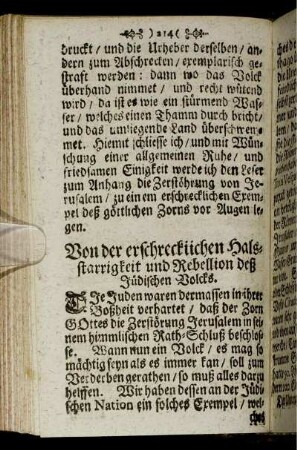 ) 214 (
druckt / und die Urheber derselben / an-
dern zum Abschrecken / exemplarisch ge-
straft werden: dann wo das Volck
überhand nimmet / und recht wütend
wird / da ist es wie ein stürmend Was-
ser / welches einen Thamm durch bricht /
und das umliegende Land überschwem-
met. Hiemit schliesse ich / und mit Wün-
schung einer allgemeinen Ruhe / und
friedsamen Einigkeit werde ich den Leser
zum Anhang die Zerstöhrung von Je-
rusalem / zu einem erschrecklichen Exem-
pel deß göttlichen Zorns vor Augen le-
gen.
Von der erschrecklichen Hals-
starrigkeit und Rebellion deß
Jüdischen Volcks.
DIe Juden waren dermassen in ihrer
Boßheit verhartet / daß der Zorn
GOttes die Zerstörung Jerusalem in sei-
nem himmlischen Rath-Schluß beschlos-
se. Wann nun ein Volck / es mag so
mächtig seyn als es immer kan / soll zum
Verderben gerathen / so muß alles darzu
helffen. Wir haben dessen an der Jüdi-
schen Nation ein solches Exempel / wel-
ches